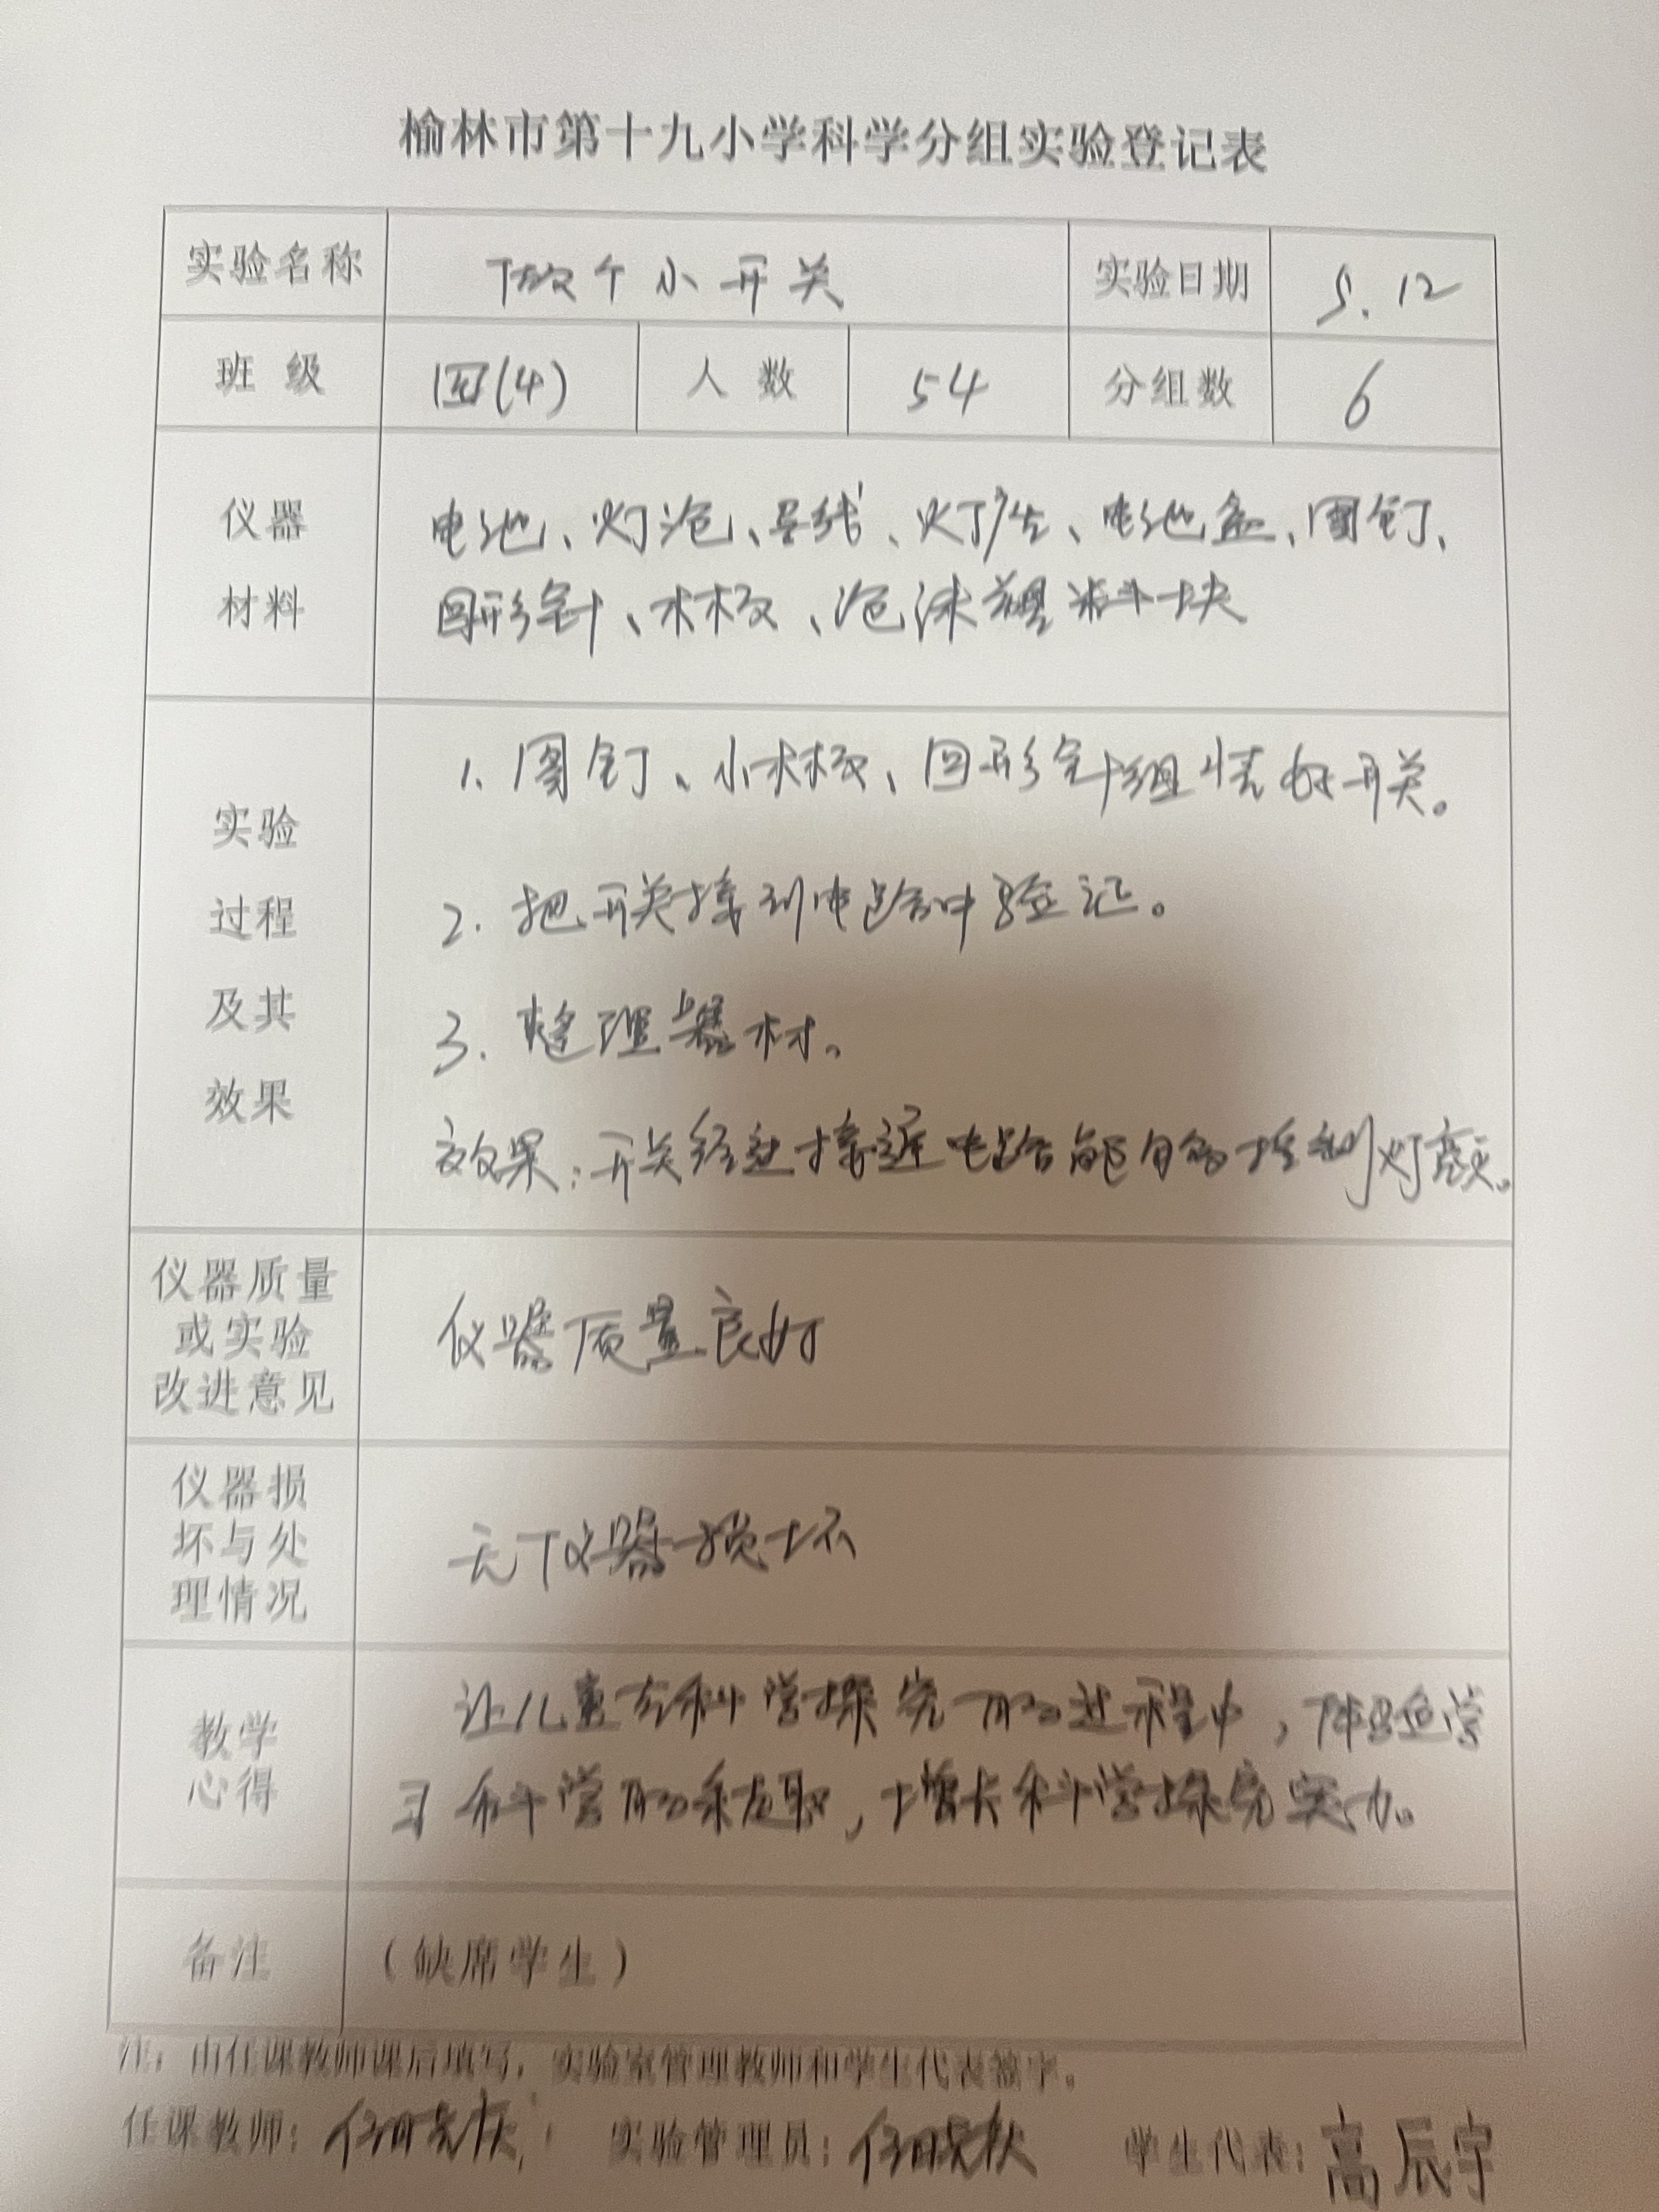 榆林市第十九小学科学分组实验登记表
实验名称 做个小开关 实验日期 5.12
班 级 四(4) 人 数 54 分组数 6
仪器
材料
电池、灯泡、导线、灯座、电池盒、图钉、
回形针、木板、泡沫塑料块
实验
过程
及其
效果
1. 图钉、小木板、回形针组 开关。
2. 把开关接到电路中验证。
3. 整理器材。
效果:开关经过接近电路能 控制灯亮灭。
仪器质量
或实验
改进意见
仪器质量良好
仪器损
坏与处
理情况
无仪器损坏
教学
心得
让儿童在科学探究的过程中,体验学
习科学的乐趣,增长科学探究 力。
备注 (缺席学生)
注:由任课教师课后填写,实验室管理教师和学生代表签字。
任课教师: 实验管理员: 学生代表:高辰宇